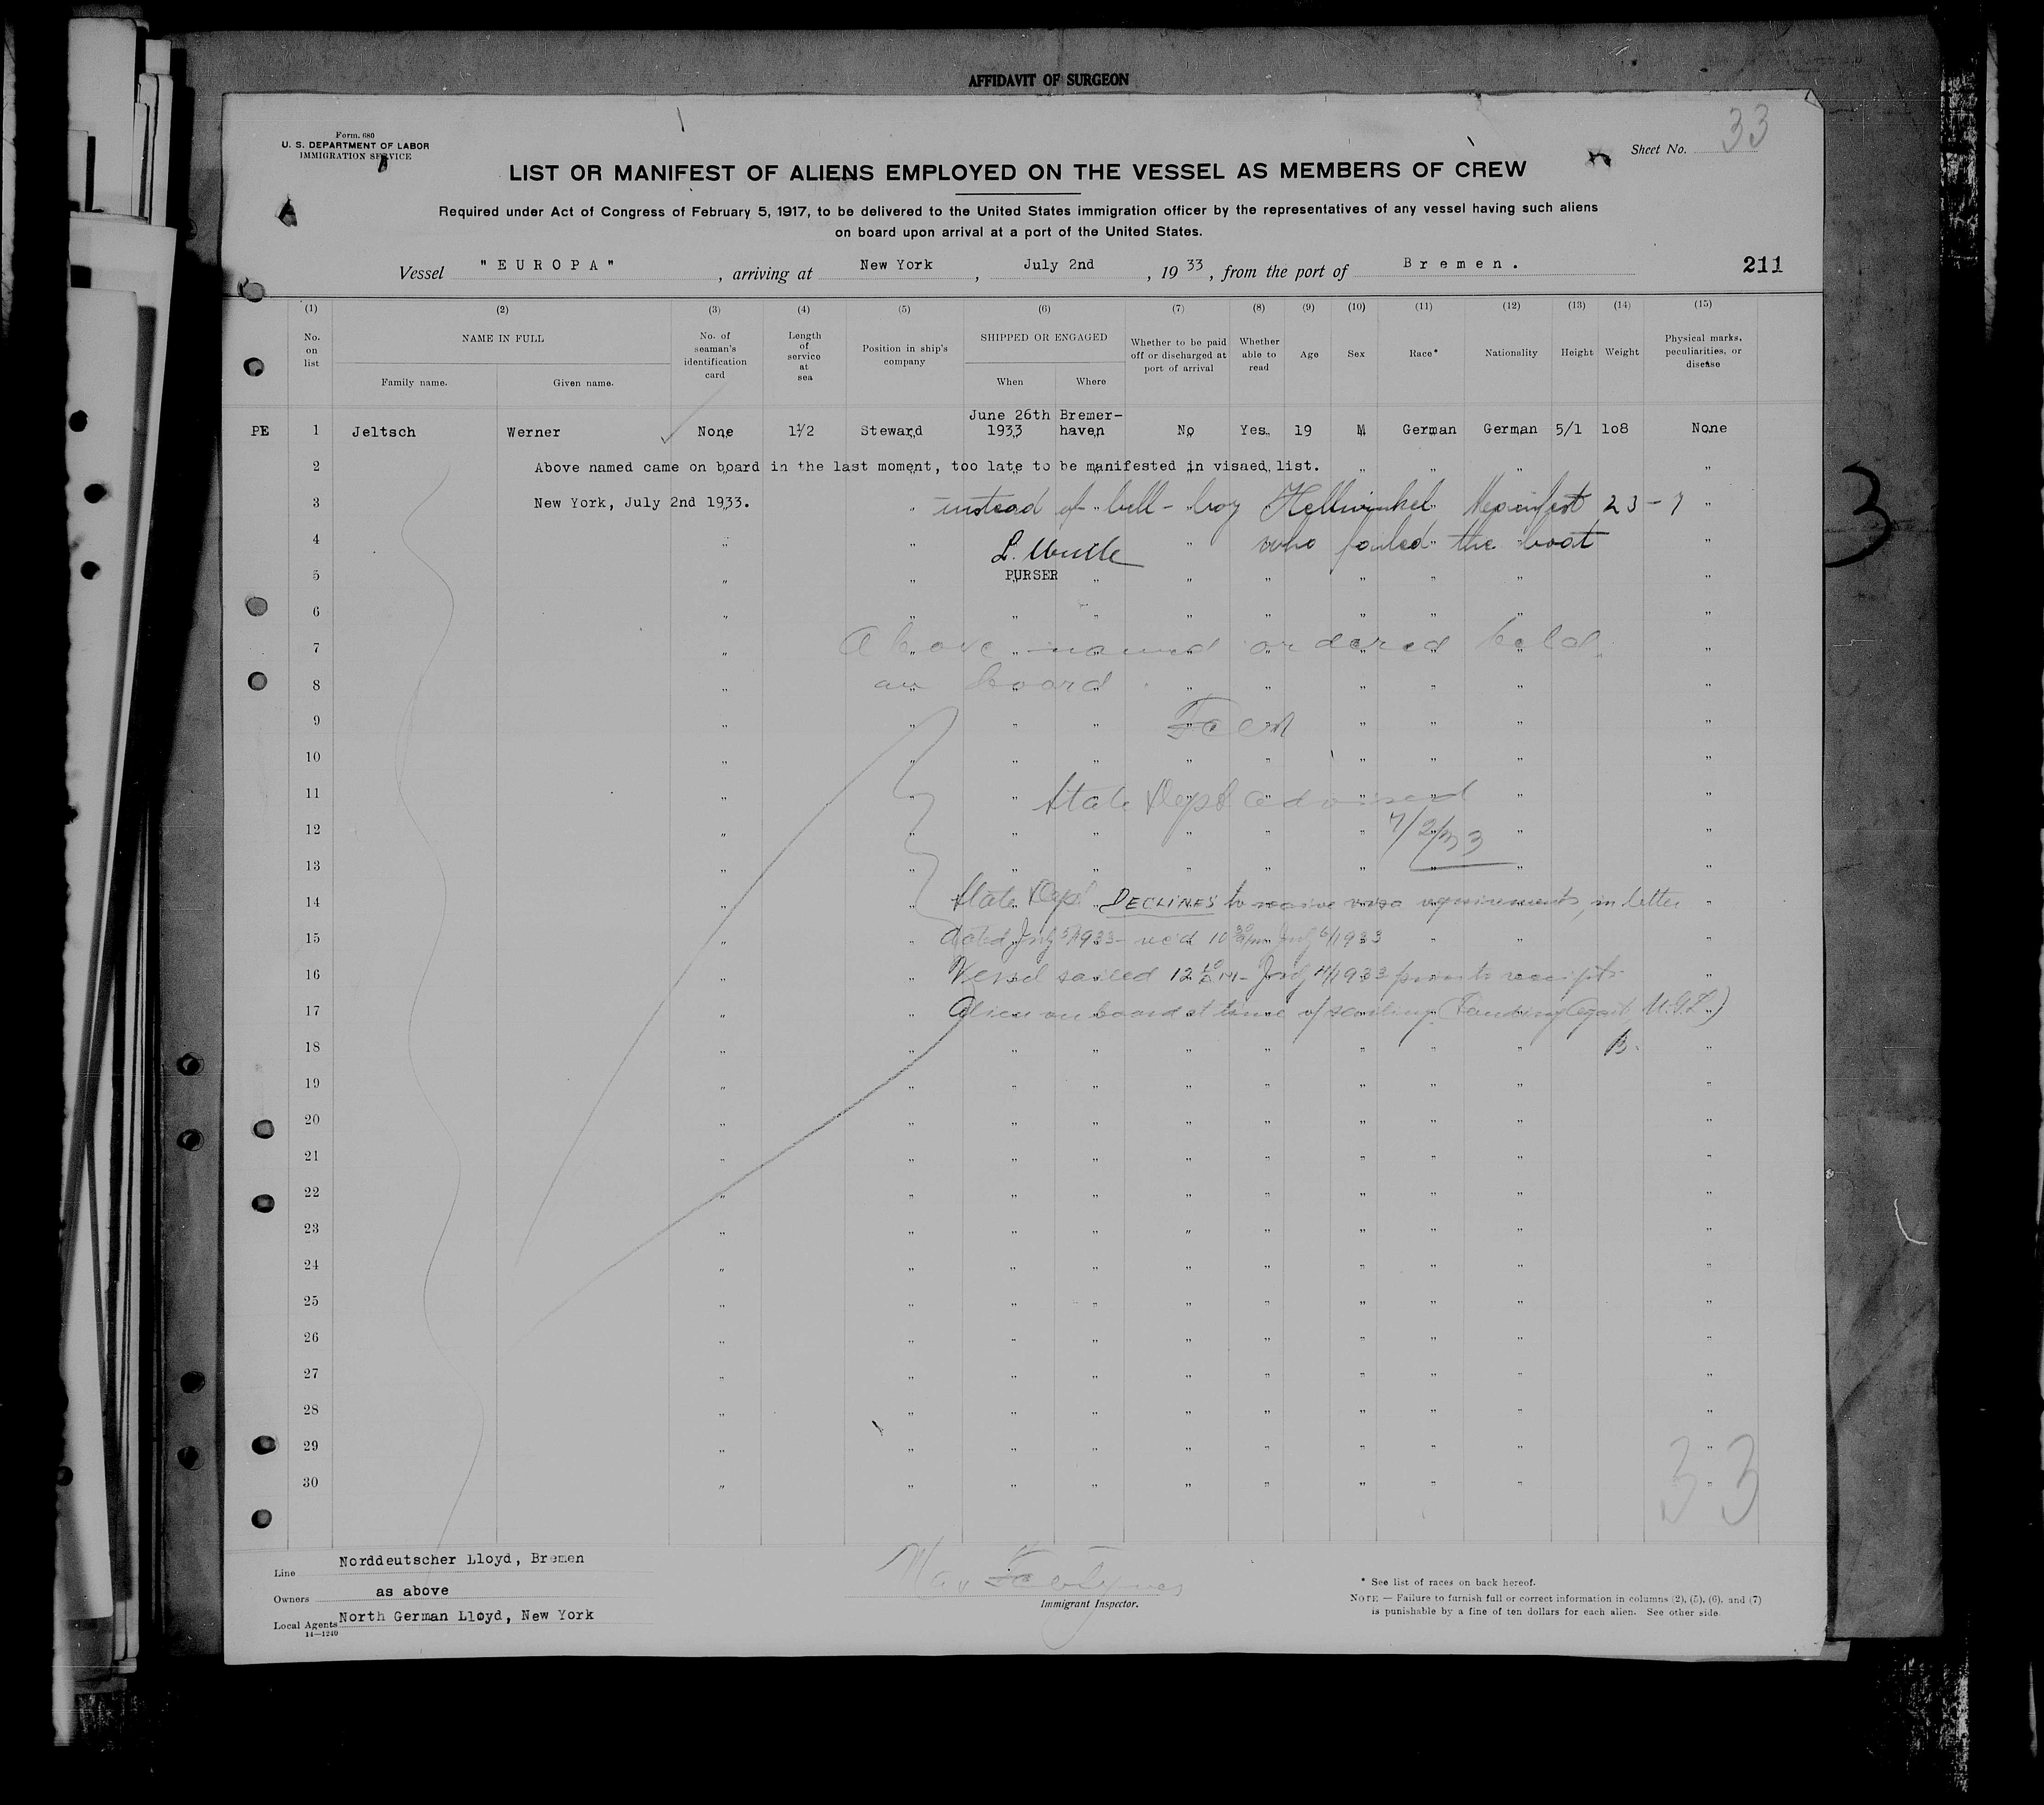 AFFIDAVIT OF SURGEON
Form. 680
U. S. DEPARTMENT OF LABOR
IMMIGRATION SERVICE
Sheet No. 33
LIST OR MANIFEST OF ALIENS EMPLOYED ON THE VESSEL AS MEMBERS OF CREW
Required under Act of Congress of February 5, 1917, to be delivered to the United States immigration officer by the representatives of any vessel having such aliens
on board upon arrival at a port of the United States.
Vessel "EUROPA", arriving at New York, July 2nd, 1933, from the port of Bremen.
211
(1) (2) (3) (4) (5) (6) (7) (8) (9) (10) (11) (12) (13) (14) (15)
No. on list NAME IN FULL Family name. Given name. No. of seaman's identification card Length of service at sea Position in ship's company SHIPPED OR ENGAGED When Where Whether to be paid off or discharged at port of arrival Whether able to read Age Sex Race* Nationality Height Weight Physical marks, peculiarities, or disease
PE 1 Jeltsch Werner None 1½ Steward June 26th 1933 Bremerhaven No Yes 19 M German German 5/1 108 None
2 Above named came on board in the last moment, too late to be manifested in visaed list.
3 New York, July 2nd 1933. instead of bell-boy Hellwinkel Manifest 23-7
4 who failed the boat
5 PURSER
6
7 Above named ordered held
8 on board
9
10
11 State Dept advised
12 7/2/33
13
14 State Dept DECLINES to receive visa requirements, in letter
15 dated July 5/1933 - rec'd 10 30 July 6/1933
16 Vessel sailed 12 10 AM - July 4/1933 prior to receipt
17 Alien on board at time of sailing (Landing Agent N.G.L.)
18 B.
19
20
21
22
23
24
25
26
27
28
29
30
3
33
Line Norddeutscher Lloyd, Bremen
Owners as above
Local Agents North German Lloyd, New York
14—1240
Immigrant Inspector.
* See list of races on back hereof.
NOTE — Failure to furnish full or correct information in columns (2), (5), (6), and (7)
is punishable by a fine of ten dollars for each alien. See other side.